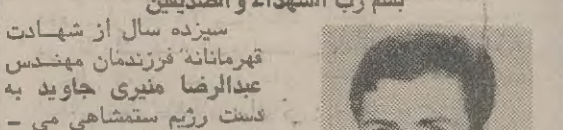 بسم رب الشهداء و الصدیقین
سیزده سال از شهادت
قهرمانانه فرزندمان مهندس
عبدالرضا منیری جاوید به
دست رژیم ستمشاهی می –